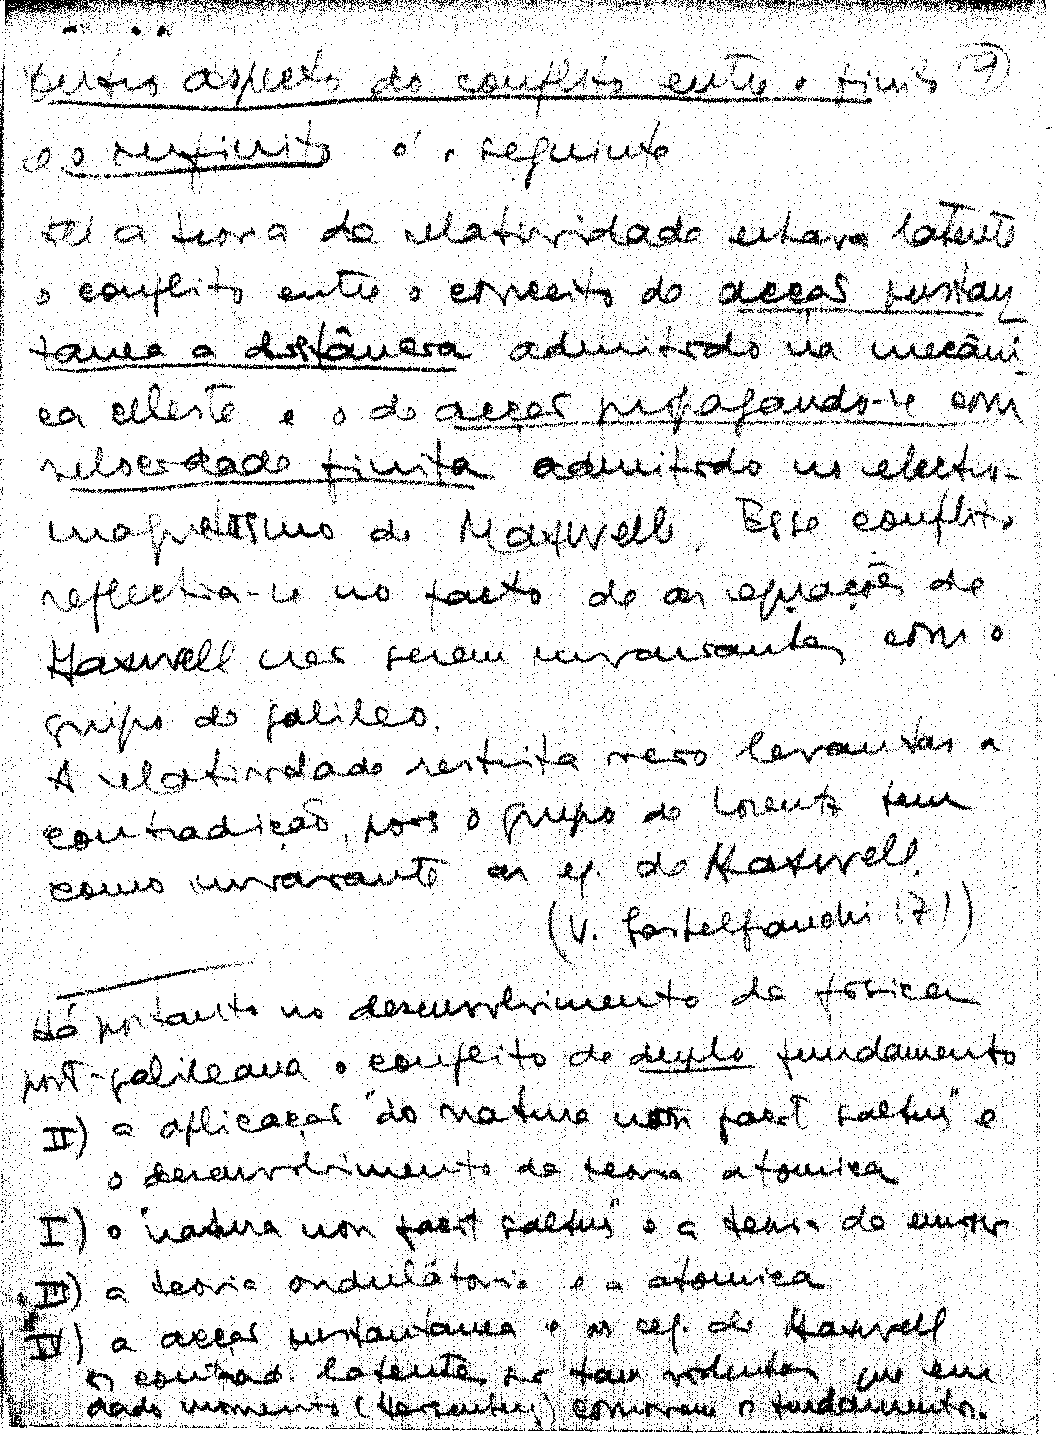 Outro aspecto do conflito entre o finito 9
e o infinito é o seguinte
a teoria da relatividade estava latente
o conflito entre o conceito de acção instan
tanea a distância admitido na mecâni
ca celeste e o de acção propagando-se com
velocidade finita admitido no electro-
magnetismo de Maxwell. Esse conflito
reflectia-se no facto de as equações de
Maxwell não serem invariantes com o
grupo de Galileo.
A relatividade restrita veio levantar a
contradição, pois o grupo de Lorentz tem
como invariante as eq. de Maxwell.
(V. Castelfranchi (7))
Há portanto no desenvolvimento da física
post-galileana o conflito do duplo fundamento
II) a aplicação "do natura non facit saltus" e
o desenvolvimento da teoria atomica
I) o "natura non facit saltus" e a teoria do
III) a teoria ondulátoria e a atomica
IV) a acção instantanea e as eq. de Maxwell
as latentes, são que em
dado momento ( ) o fundamento.